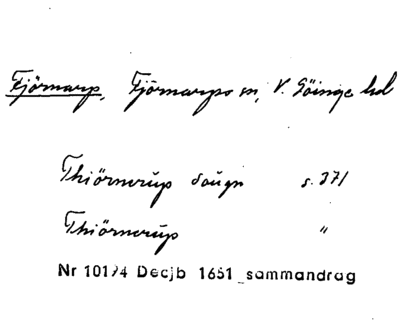 Fjörnarp, Fjörnarps sn, V. Göinge hd
Thiörnerup Sougn s. 371
Thiörnerup "
Nr 10194 Decjb 1651 sammandrag